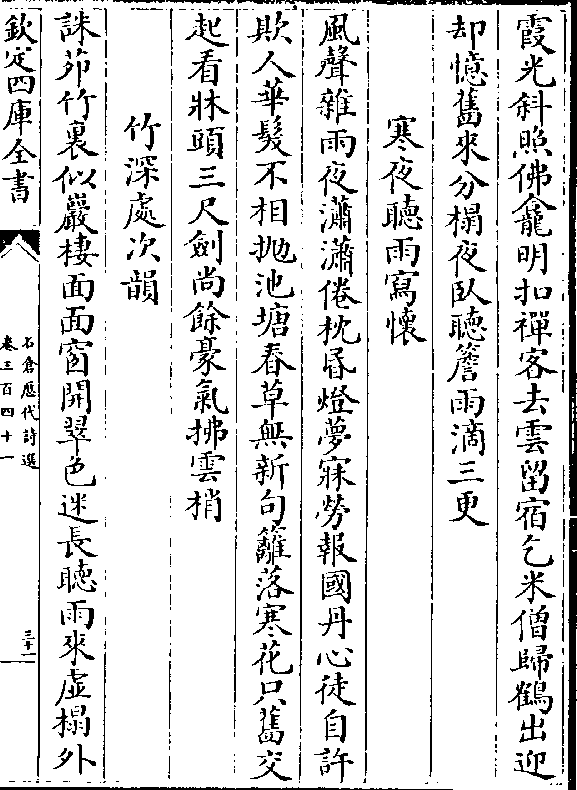 霞光斜照佛龕明扣禪客去雲留宿乞米僧歸鶴出迎
却憶舊來分榻夜卧聽簷雨滴三更
寒夜聽雨寫懷
風聲雜雨夜瀟瀟倦枕昏燈夢寐勞報國丹心徒自許
欺人華髮不相抛池塘春草無新句籬落寒花只舊交
起看牀頭三尺劍尚餘豪氣拂雲梢
竹深處次韻
誅茆竹裏似巖棲面面窗開翠色迷長聽雨來虛榻外
欽定四庫全書
石倉歴代詩選
卷三百四十一
三十一